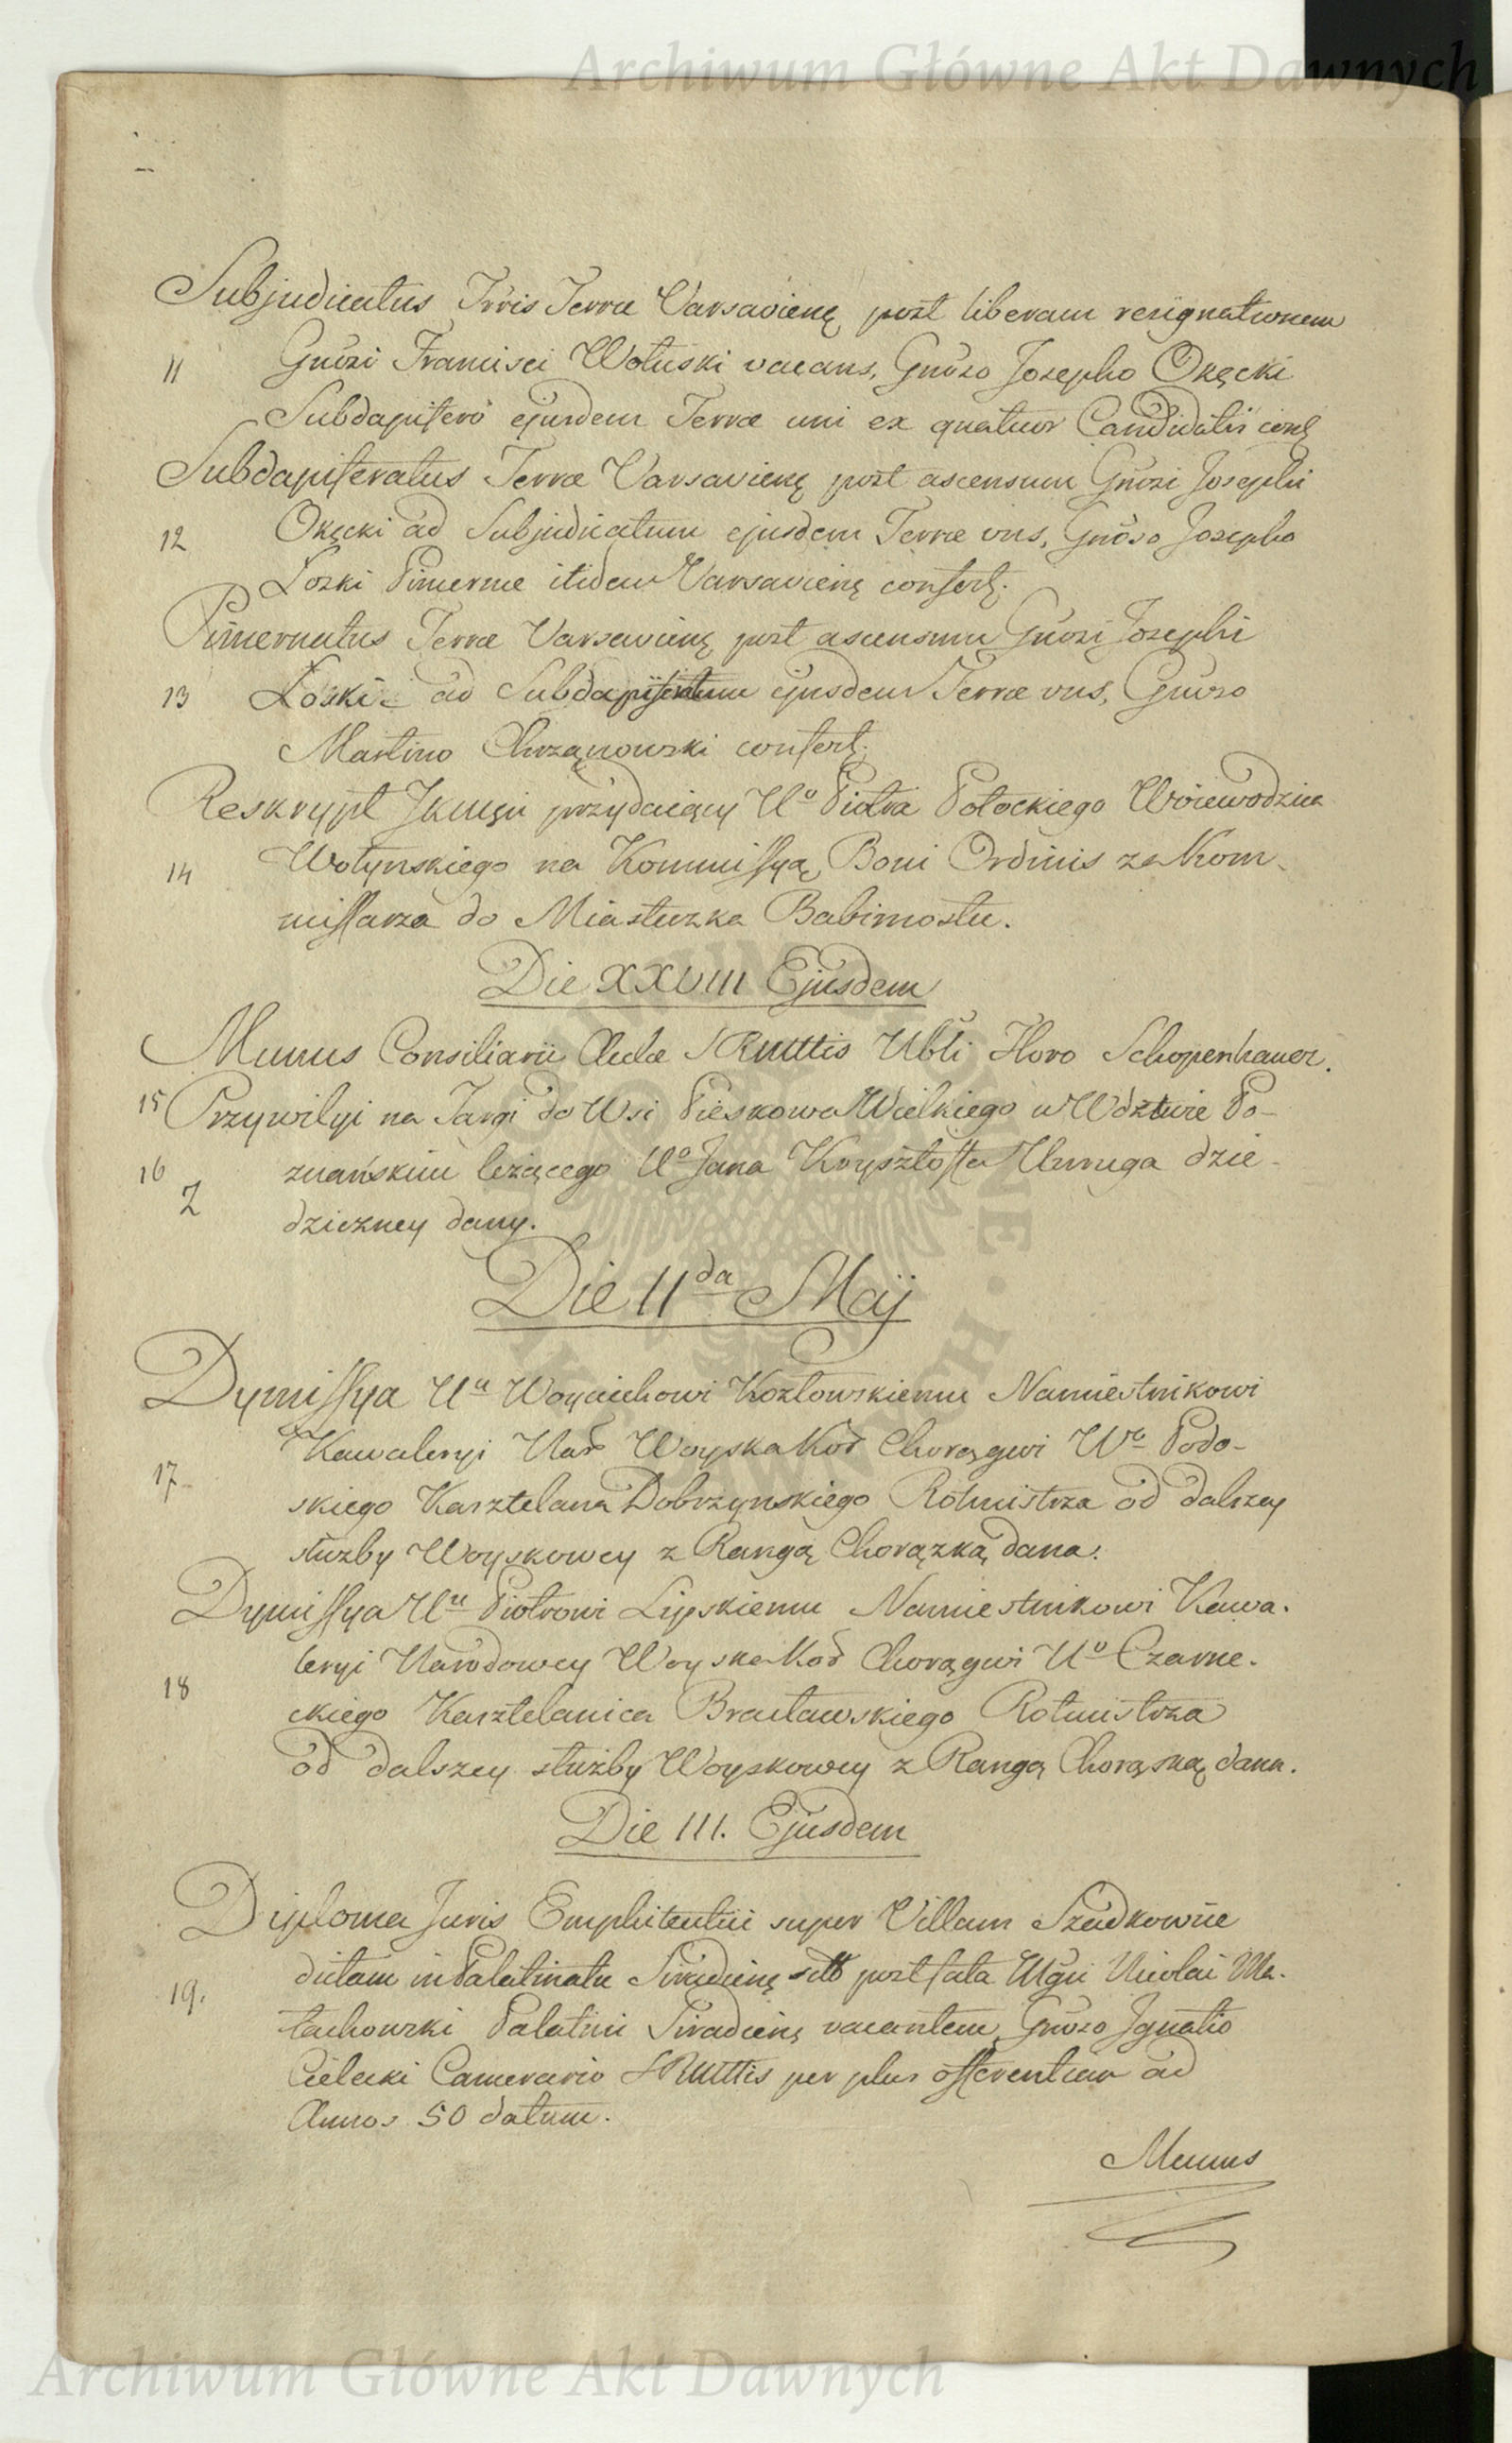 Archiwum Główne Akt Dawnych
Subjudicatus Trris Terræ Varsavienę post liberam resignationem
11 Gnosi Francisci Wołuski vacans, Gnoso Josepho Okęcki
Subdapifero ejusdem Terræ uni ex quatuor Candidatis
Subdapiferatus Terræ Varsavienę post ascensum Gnosi Josephi
12 Okęcki ad Subjudicatum ejusdem Terræ vns, Gnoso Josepho
Łoski Pincernæ itidem Varsavienę confertę.
Pincernatus Terræ Varsavienę post ascensum Gnosi Josephi
13 Łoski ad Subdapiferatum ejusdem Terræ vns, Gnoso
Martino Chrzanowski confertę.
Reskrypt JKMści przydaiący Uo Piotra Potockiego Woiewodzica
14 Wołynskiego na Kommissyą Boni Ordinis za Kom-
missarza do Miasteczka Babimostu.
Die XXVIII Ejusdem
Munus Consiliarii Aulæ SRMttis Nbli Floro Schopenhauer.
15 Przywilyi na Targi do Wsi Pieskowa Wielkiego w Wdztwie Po-
16 znańskim leżącego Uo Jana Krysztoffa Unruga dzie-
Z dziczney dany.
Die IIda Maij
Dymissya Uu Woyciechowi Kozłowskiemu Namiestnikowi
Kawaleryi Nar Woyska Kor Chorągwi Wo Podo-
17 skiego Kasztelana Dobrzynskiego Rotmistrza od dalszey
służby Woyskowey z Rangą Chorązką dana.
Dymissya Uu Piotrowi Lipskiemu Namiestnikowi Kawa-
leryi Narodowey Woyska Kor Chorągwi Uo Czarne-
18 ckiego Kasztelanica Bracławskiego Rotmistrza
od dalszey służby Woyskowey z Rangą Chorąską dana.
Die III. Ejusdem
Diploma Juris Emphiteutici super Villam Szadkowice
dictam in Palatinatu Siradienę post fata Mgci Nicolai Ma-
19. łachowski Palatini Siradienę vacantem, Gnoso Ignatio
Cielecki Camerario SRMttis per plus offerentiam ad
Annos 50 datum.
Munus
Archiwum Główne Akt Dawnych